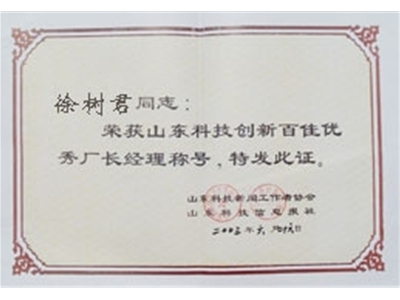 徐树君同志：
荣获山东科技创新百佳优
秀厂长经理称号，特发此证。
山东科技新闻工作者协会
山东科技信息报社
2003年六月